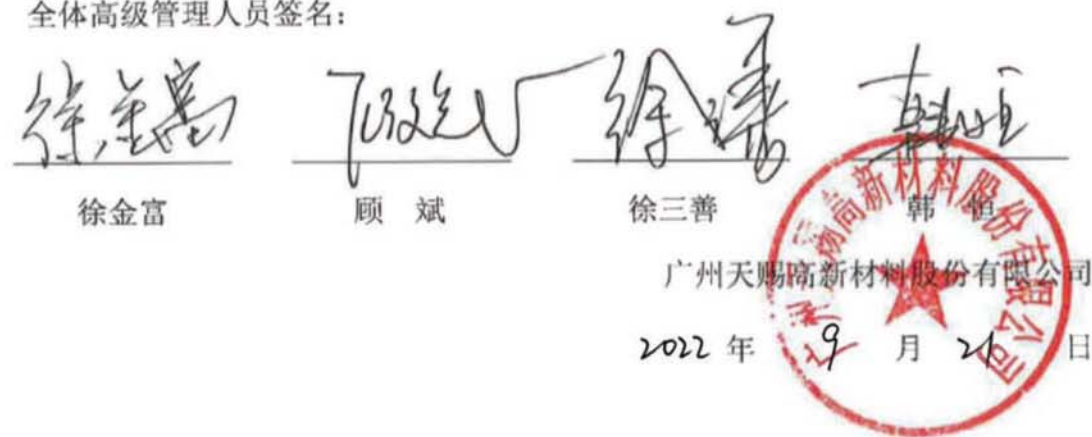 全体高级管理人员签名：
徐金富 顾斌 徐三善 韩恒
徐金富 顾 斌 徐三善 韩 恒
广州天赐高新材料股份有限公司
2022 年 9 月 21 日
广州天赐高新材料股份有限公司